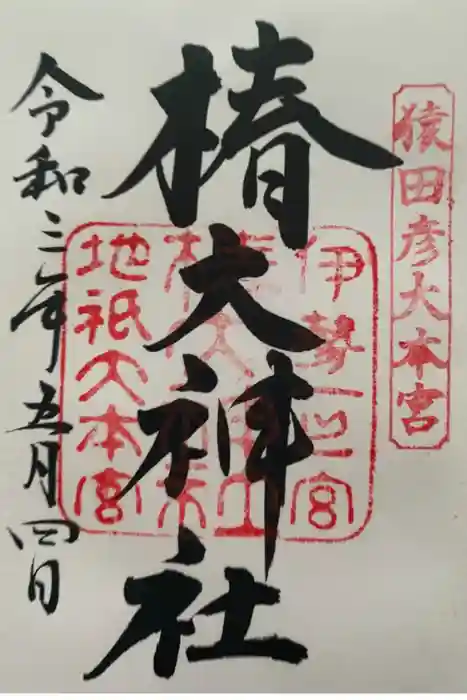 猿田彦大本宮
椿大神社
伊勢一之宮
地祇大本宮
令和三年五月四日